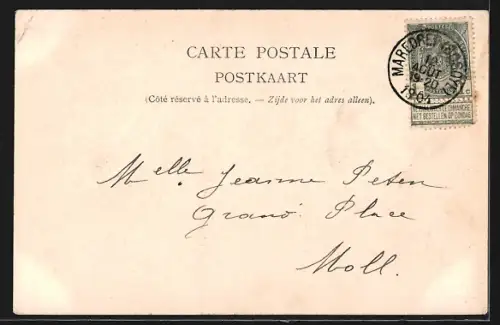 CARTE POSTALE
POSTKAART
(Côté réservé à l'adresse. — Zijde voor het adres alleen).
18
AOUT
1905
NIET BESTELLEN OP ZONDAG
Melle Jeanne Peten
Grand' Place
Moll.